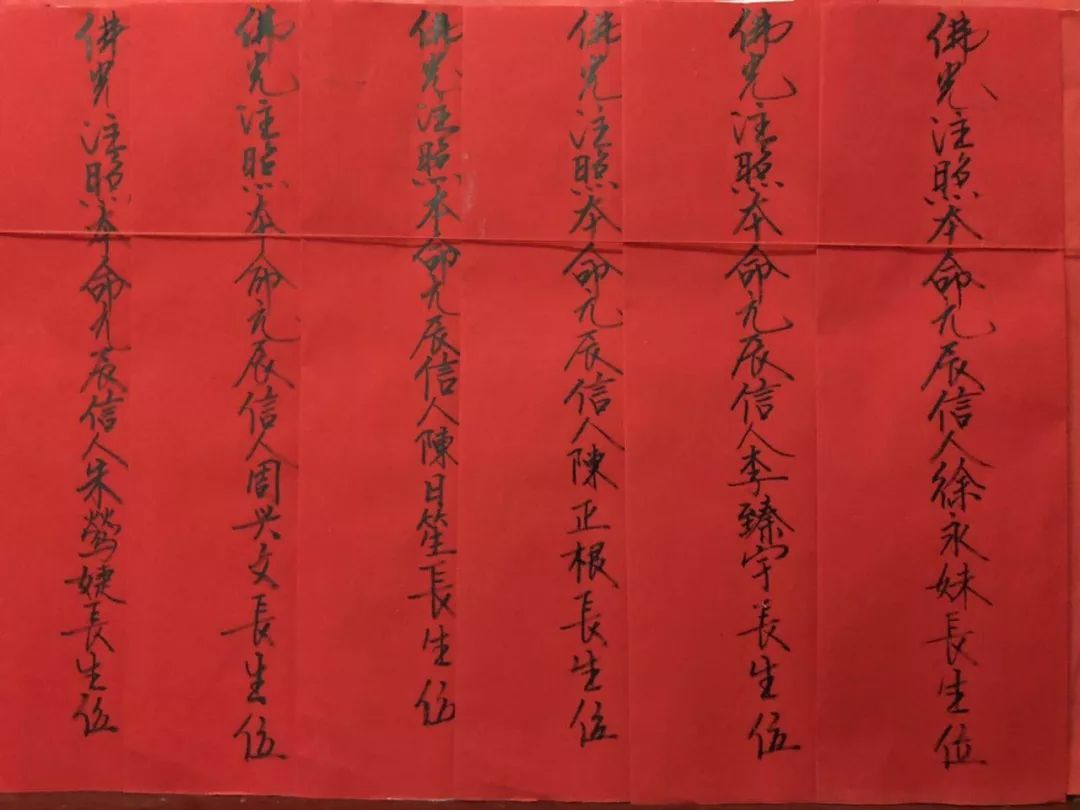 佛光注照本命元辰信人徐永妹長生位
佛光注照本命元辰信人李臻宇長生位
佛光注照本命元辰信人陳正根長生位
佛光注照本命元辰信人陳日笙長生位
佛光注照本命元辰信人周兴文長生位
佛光注照本命元辰信人朱鶯婕長生位